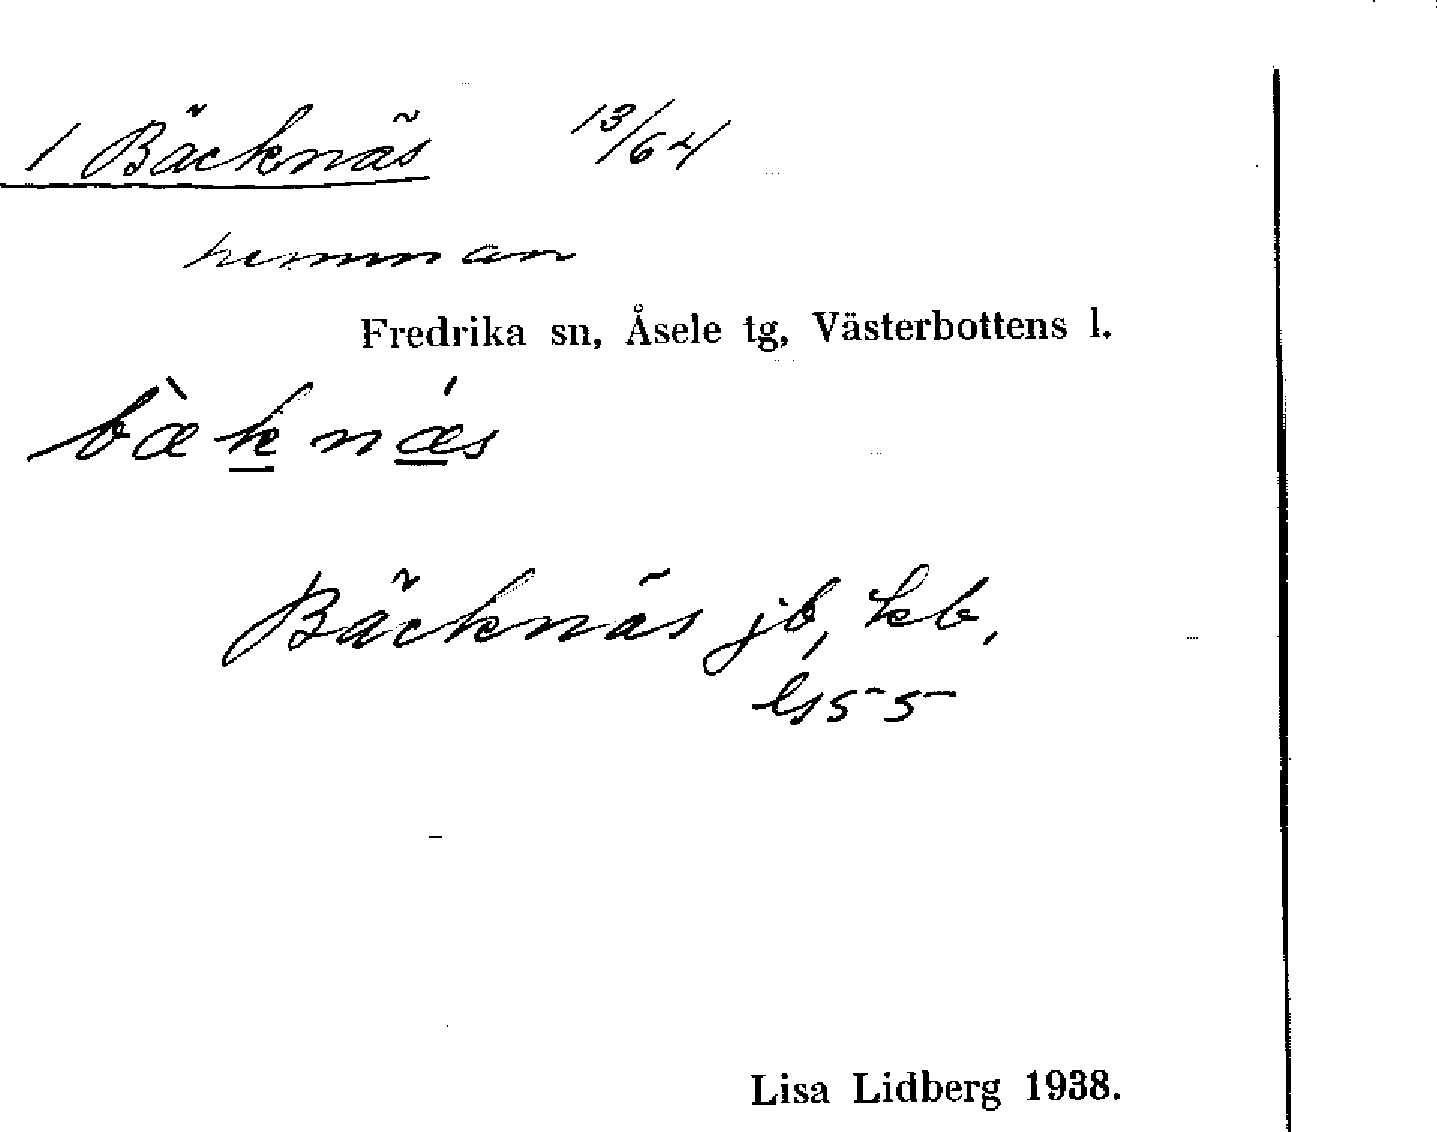 1 Bäcknäs 13/64
hemman
Fredrika sn, Åsele tg, Västerbottens l.
bæ̀knǽs
Bäcknäs jb, kb,
ls 55
Lisa Lidberg 1938.